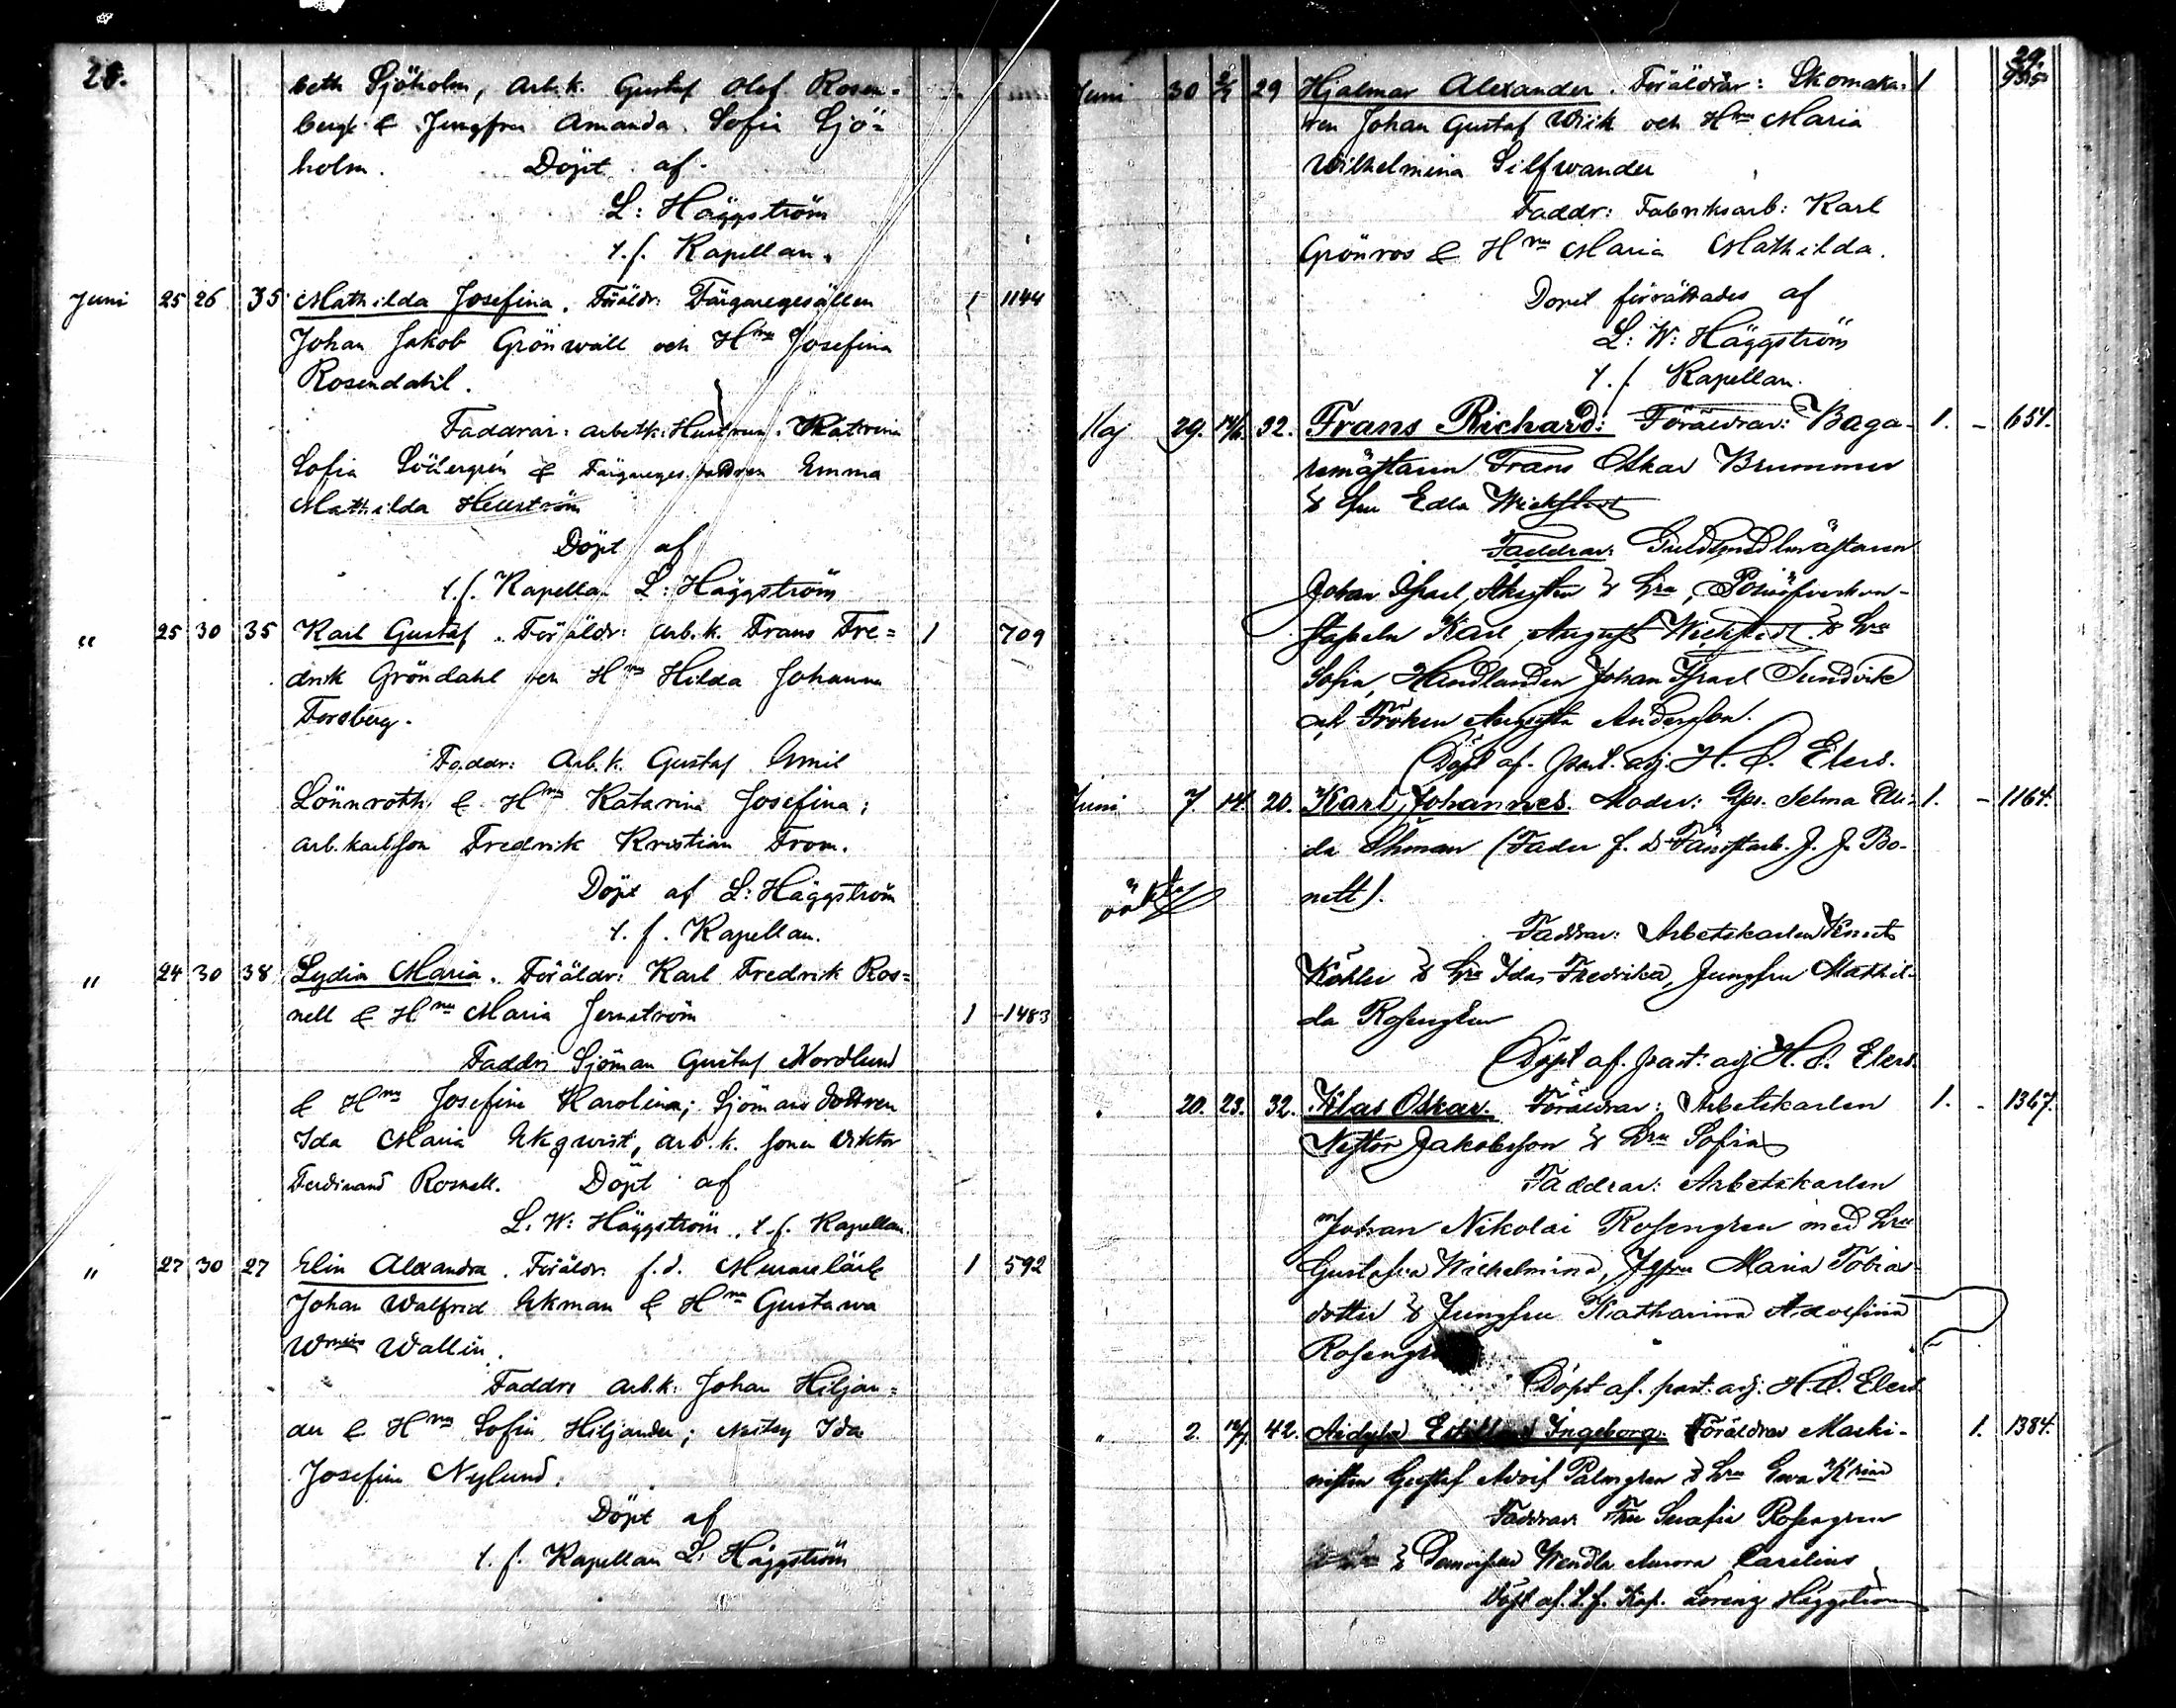 28.
beth Sjöholm, Arb.k. Gustaf Olof Rosen-
berg & Jungfru Amanda Sofia Sjö=
holm. Döpt af
L: Häggström
t.f. Kapellan.
Juni 25 26 35 Mathilda Josefina. Föräldr: Färgaregesällen 1 1144
Johan Jakob Grönwall och Hnu Josefina
Rosendahl.
Faddrar: arbetk: Hustrun Katrina
Sofia & Färgareges. dottren Emma
Mathilda Hellström
Döpt af
t.f. Kapellan L: Häggström
" 25 30 35 Karl Gustaf. Föräldr: Arb.k. Frans Fre= 1 709
drik Gröndahl och Hnu Hilda Johanna
Forsberg.
Faddr: Arb.k. Gustaf Emil
Lönnroth & Hnu Katarina Josefina;
arb.karlsson Fredrik Kristian From.
Döpt af L: Häggström
t.f. Kapellan.
" 24 30 38 Lydia Maria. Föräldr: Karl Fredrik Ros=
nell & Hnu Maria Jernström 1 1483
Faddr: Sjöman Gustaf Nordlund
& Hnu Josefina Karolina; Sjömans dottren
Ida Maria Ekqvist, arb.k. sonen Viktor
Ferdinand Rosnell. Döpt af
L. W: Häggström, t.f. Kapellan.
" 27 30 27 Elin Alexandra. Föräldr. f.d. Murarelärl 1 592
Johan Walfrid Ekman & Hnu Gustava
Wmina Wallin.
Faddr: arb.k. Johan Hiljan=
der & Hnu Sofia Hiljander; Ida
Josefina Nylund.
Döpt af
t.f. Kapellan L. Häggström
29.
Juni 30 29 Hjalmar Alexander. Föräldrar: Skomaka- 1
ren Johan Gustaf Wiik och Hnu Maria
Wilhelmina Silfvander
Faddr: Fabriksarb: Karl
Grönros & Hnu Maria Mathilda.
Dopet förrättades af
L: W: Häggström
t.f. Kapellan.
Maj 29. 14/6 32. Frans Richard: Föräldrar: Baga- 1. - 654.
remästaren Frans Oskar Brummer
& fru Edla Wickstedt
Faddrar: Guldsmedsmästaren
Johan Israel & hru,
Karl August Wickstedt & hru
Sofia, Handlanden Johan Israel Sundvik
och Fröken Augusta Andersson.
Döpt af past. adj. H. O. Elers.
Juni 7. 14. 20. Karl Johannes. Moder: Selma Eli- 1. - 1164.
da Öhman (Fader f. d. J. J. Bo-
nett).
oäkta
Faddrar: Arbetskarlen
Köhler & hru Ida Fredrika, Jungfru Mathil-
da Rosengren
Döpt af past. adj. H. O. Elers.
" 20. 23. 32. Klas Oskar. Föräldrar: Arbetskarlen 1. - 1367.
Nestor Jakobsson & hru Sofia
Faddrar: Arbetskarlen
Johan Nikolai Rosengren med hru
Gustafva Wilhelmina, Maria Tobias-
dotter & Jungfru Katharina Adolfina
Döpt af past. adj. H. O. Elers.
" 2. 12/7 42. Ingeborg. Föräldrar Maski- 1. 1384.
nisten Gustaf Adolf Palmgren & hru Eva
Faddrar Fru Serafia Rosengren
& Wendla Aurora Carelius
Döpt af t.f. Kap. Häggström